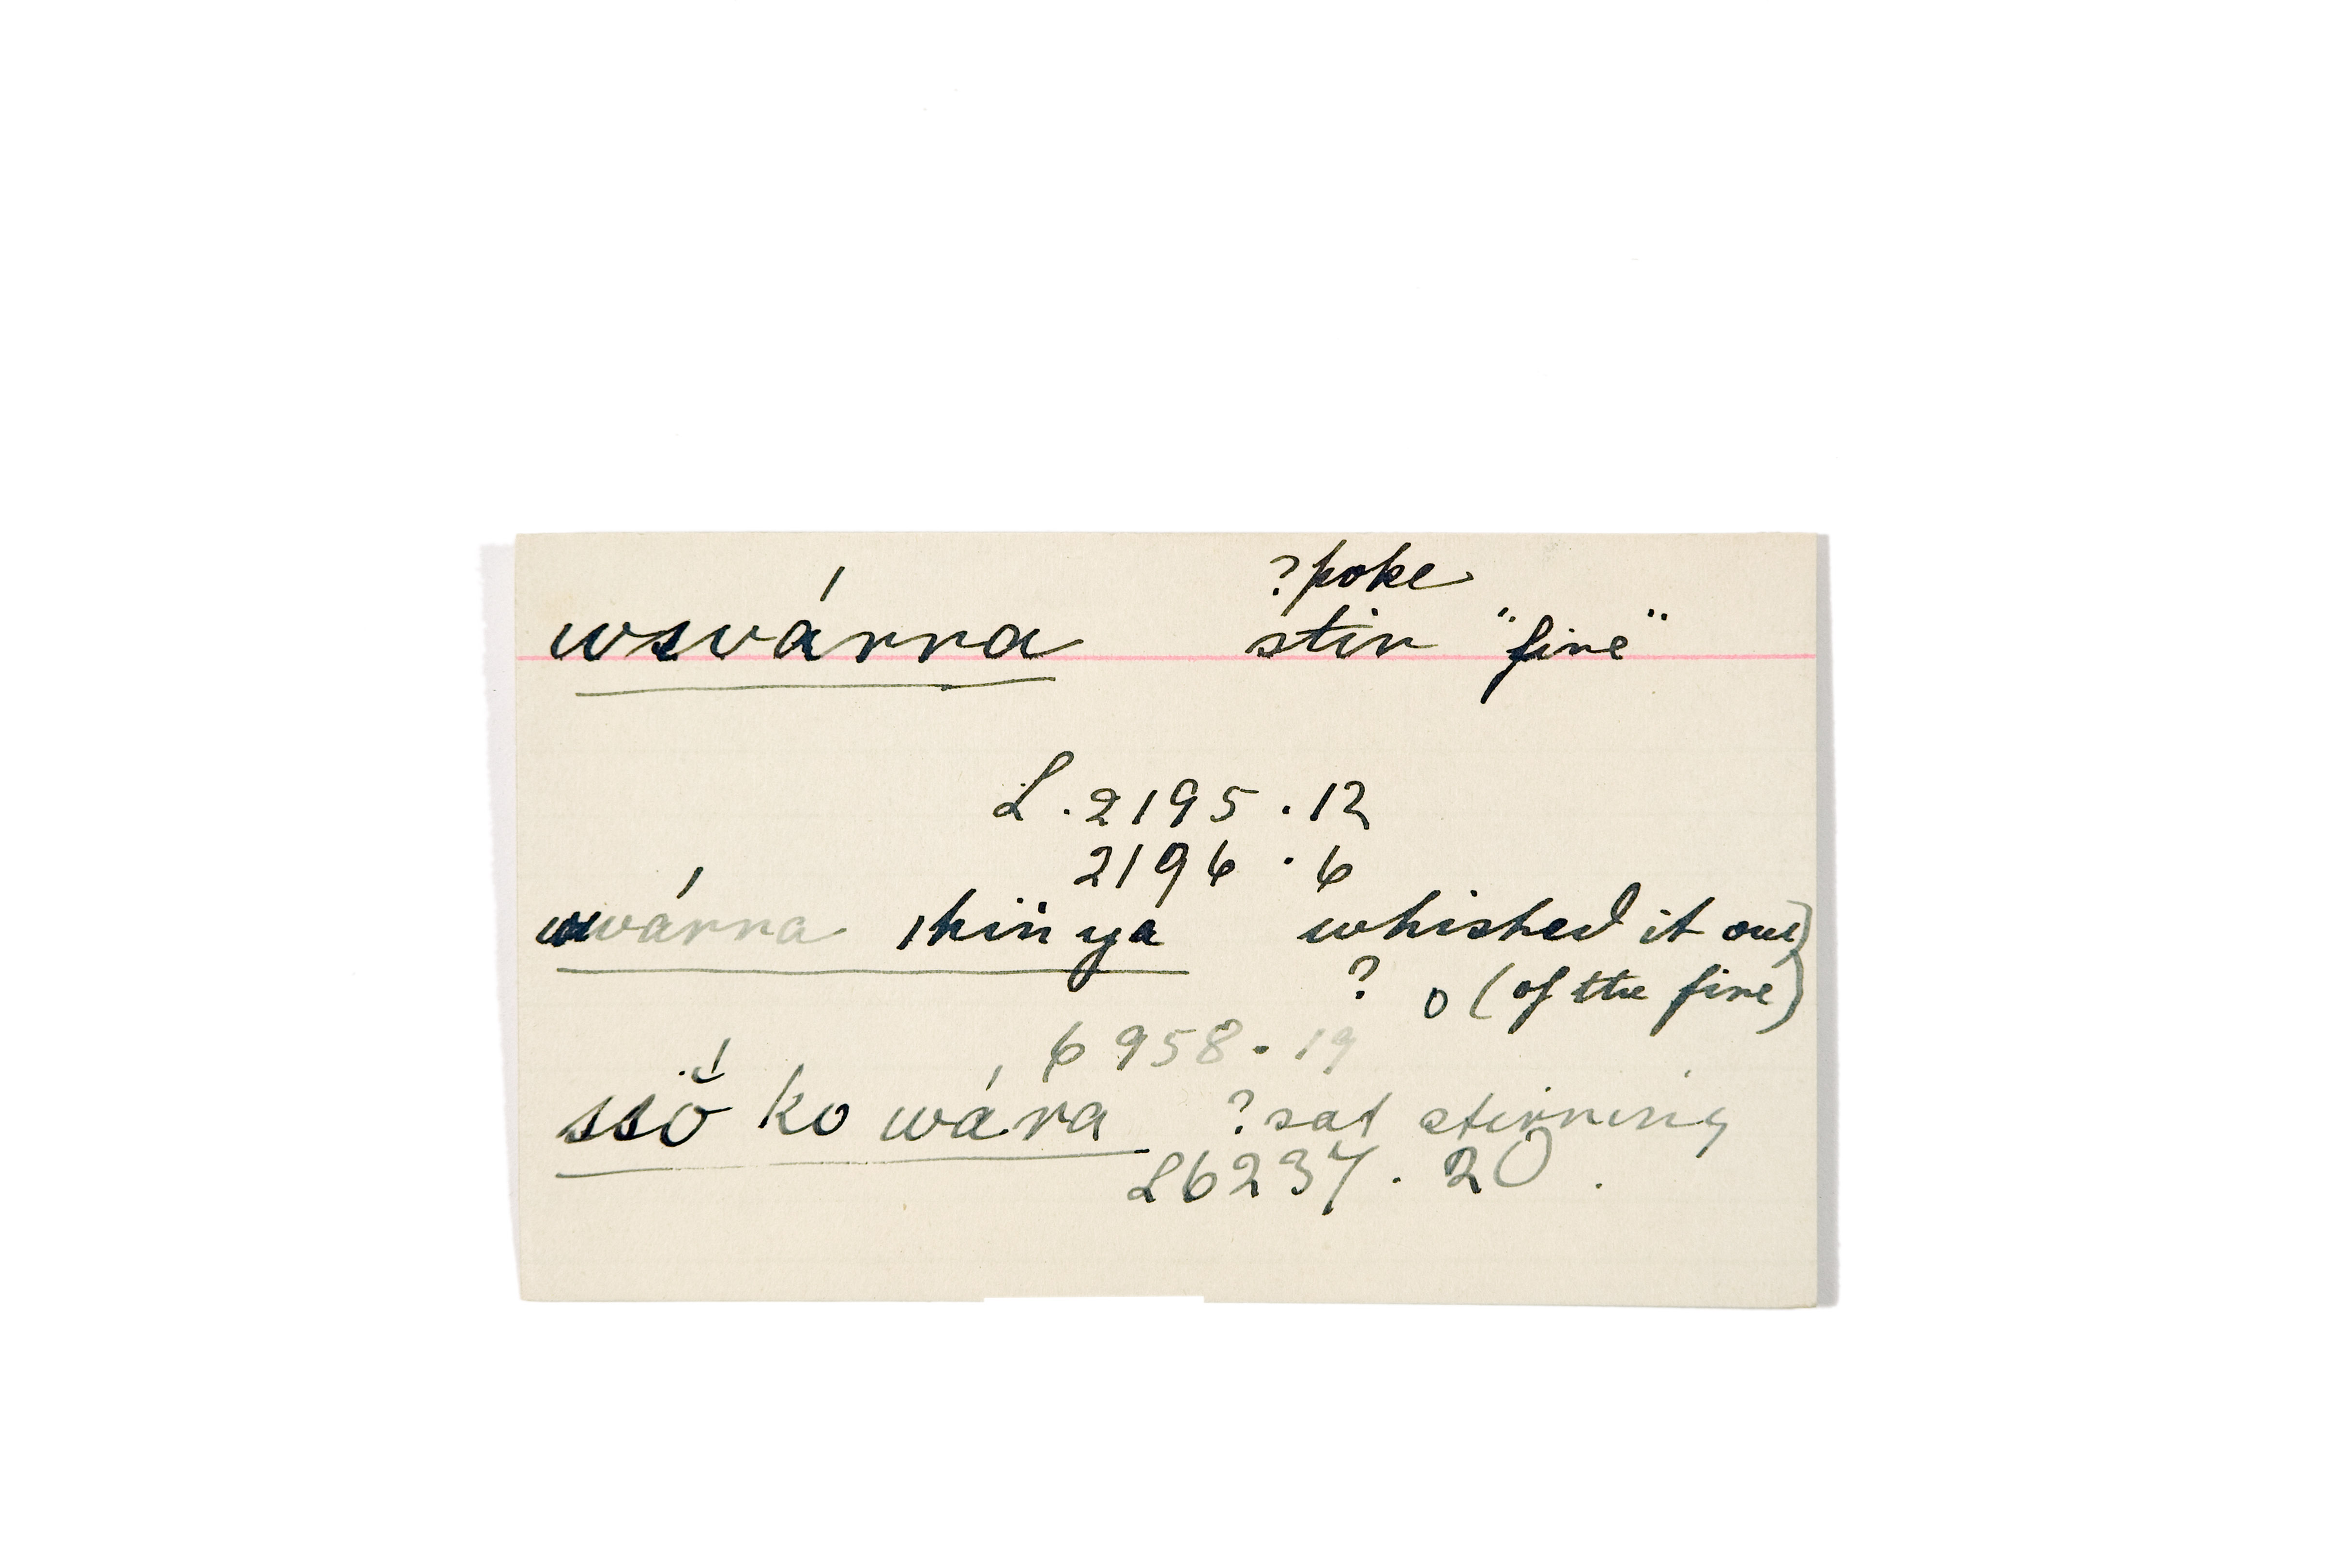 ?poke
wsvárra stir "fire"
L. 2195.12
2196.6
wárra ǀhiń ya whisked it out
? (of the fire)
6958.19
ssŏ́ ko wára ?sat stirring
L 6237.20.